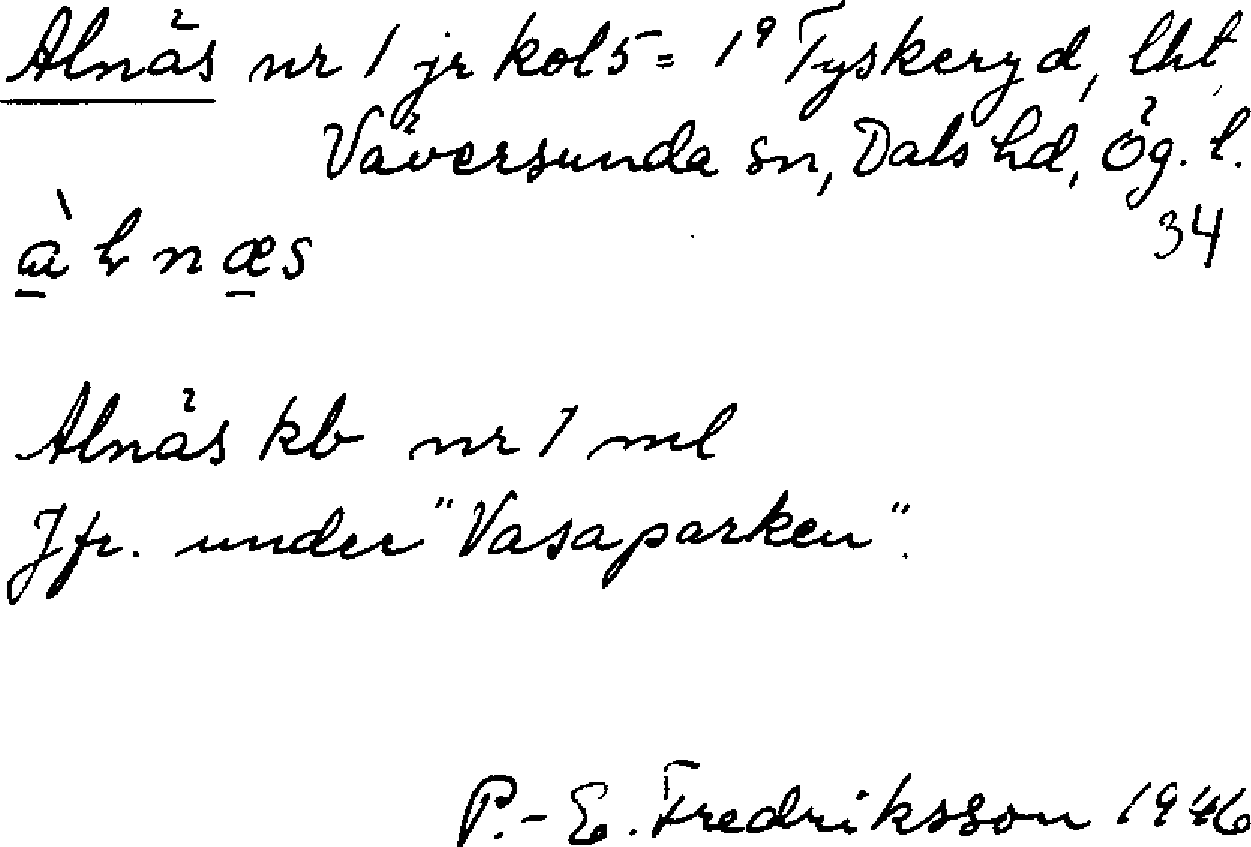 Alnäs nr 1 jr kol 5 = 1⁹ Tyskeryd, lht,
Väversunda sn, Dals hd, Ög. l.
34
àlnæs
Alnäs kb nr 1 ml
Jfr. under "Vasaparken".
P.-E. Fredriksson 1946